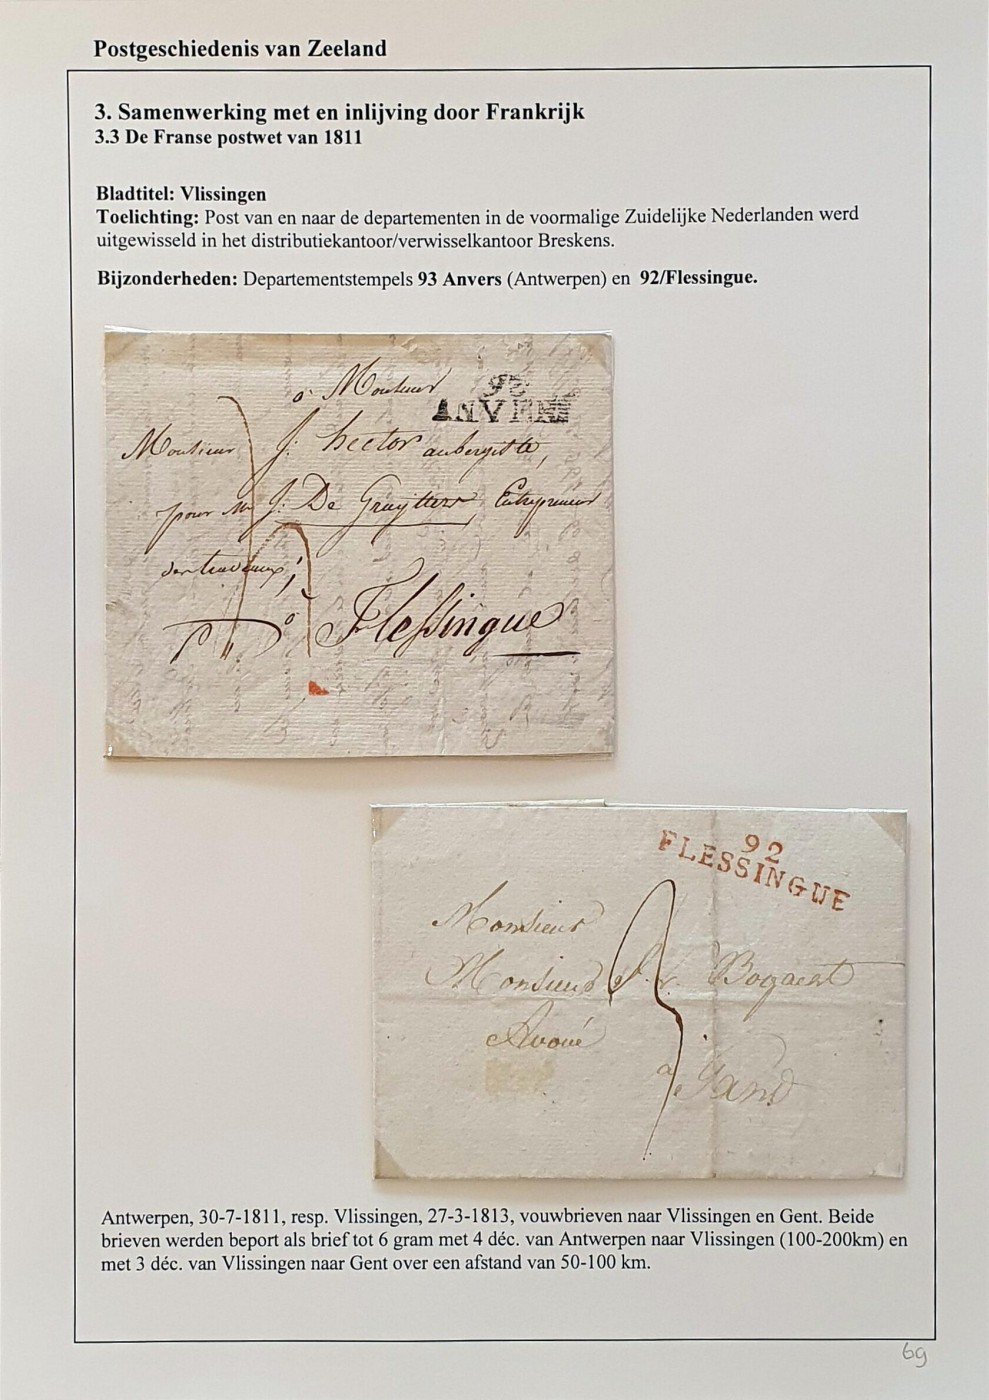 Postgeschiedenis van Zeeland
3. Samenwerking met en inlijving door Frankrijk
3.3 De Franse postwet van 1811
Bladtitel: Vlissingen
Toelichting: Post van en naar de departementen in de voormalige Zuidelijke Nederlanden werd
uitgewisseld in het distributiekantoor/verwisselkantoor Breskens.
Bijzonderheden: Departementstempels 93 Anvers (Antwerpen) en 92/Flessingue.
a Monsieur
93
ANVERS
Monsieur J: hector aubergiste,
pour Mr J: De Gruijtters Entrepreneur
des travaux,
a Flessingue
92
FLESSINGUE
Monsieur
Monsieur Bogaert
Avoué
a Gand
Antwerpen, 30-7-1811, resp. Vlissingen, 27-3-1813, vouwbrieven naar Vlissingen en Gent. Beide
brieven werden beport als brief tot 6 gram met 4 déc. van Antwerpen naar Vlissingen (100-200km) en
met 3 déc. van Vlissingen naar Gent over een afstand van 50-100 km.
69